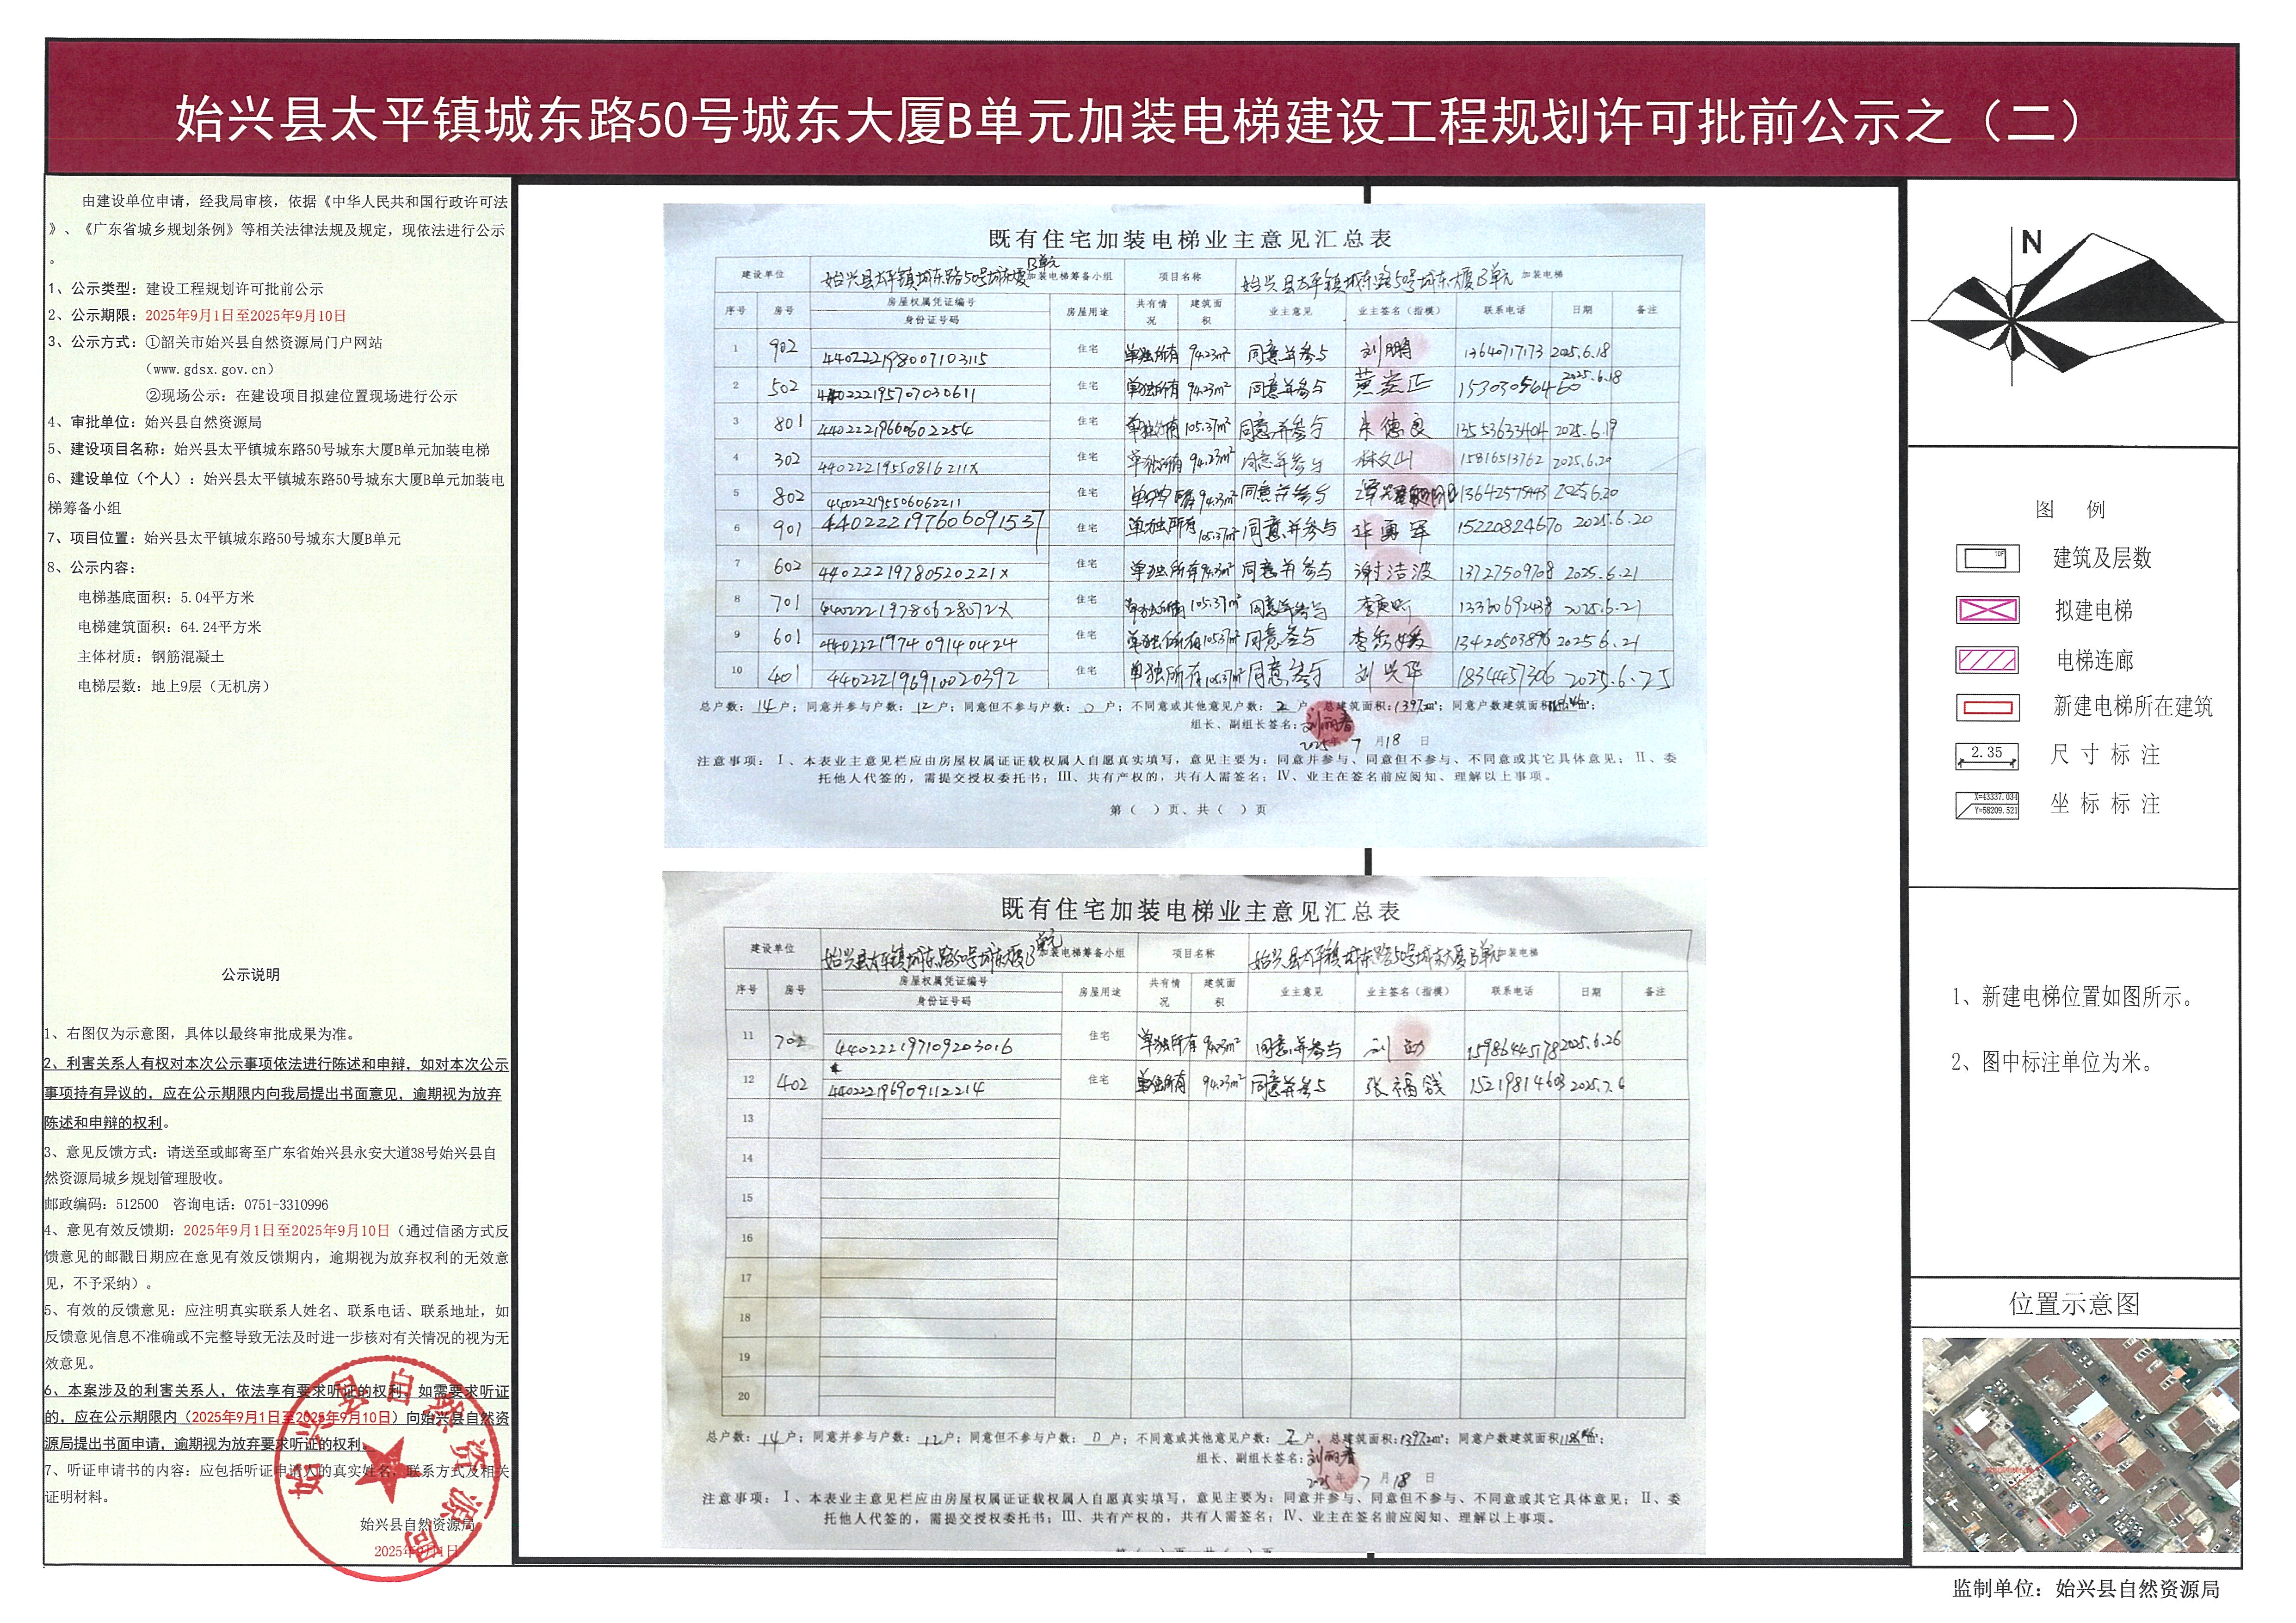 始兴县太平镇城东路50号城东大厦B单元加装电梯建设工程规划许可批前公示之（二）
由建设单位申请，经我局审核，依据《中华人民共和国行政许可法
》、《广东省城乡规划条例》等相关法律法规及规定，现依法进行公示
。
1、公示类型：建设工程规划许可批前公示
2、公示期限：2025年9月1日至2025年9月10日
3、公示方式：①韶关市始兴县自然资源局门户网站
（www.gdsx.gov.cn）
②现场公示：在建设项目拟建位置现场进行公示
4、审批单位：始兴县自然资源局
5、建设项目名称：始兴县太平镇城东路50号城东大厦B单元加装电梯
6、建设单位（个人）：始兴县太平镇城东路50号城东大厦B单元加装电
梯筹备小组
7、项目位置：始兴县太平镇城东路50号城东大厦B单元
8、公示内容：
电梯基底面积：5.04平方米
电梯建筑面积：64.24平方米
主体材质：钢筋混凝土
电梯层数：地上9层（无机房）
公示说明
1、右图仅为示意图，具体以最终审批成果为准。
2、利害关系人有权对本次公示事项依法进行陈述和申辩，如对本次公示
事项持有异议的，应在公示期限内向我局提出书面意见，逾期视为放弃
陈述和申辩的权利。
3、意见反馈方式：请送至或邮寄至广东省始兴县永安大道38号始兴县自
然资源局城乡规划管理股收。
邮政编码：512500 咨询电话：0751-3310996
4、意见有效反馈期：2025年9月1日至2025年9月10日（通过信函方式反
馈意见的邮戳日期应在意见有效反馈期内，逾期视为放弃权利的无效意
见，不予采纳）。
5、有效的反馈意见：应注明真实联系人姓名、联系电话、联系地址，如
反馈意见信息不准确或不完整导致无法及时进一步核对有关情况的视为无
效意见。
6、本案涉及的利害关系人，依法享有要求听证的权利，如需要求听证
的，应在公示期限内（2025年9月1日至2025年9月10日）向始兴县自然资
源局提出书面申请，逾期视为放弃要求听证的权利。
7、听证申请书的内容：应包括听证申请人的真实姓名、联系方式及相关
证明材料。
始兴县自然资源局
2025年9月1日
始兴县自然资源局
既有住宅加装电梯业主意见汇总表
建设单位 始兴县太平镇城东路50号城东大厦B单元加装电梯筹备小组 项目名称 始兴县太平镇城东路50号城东大厦B单元 加装电梯
序号 房号 房屋权属凭证编号 身份证号码 房屋用途 共有情况 建筑面积 业主意见 业主签名（指模） 联系电话 日期 备注
1 902 440222198007103115 住宅 单独所有 94.23m² 同意并参与 刘鹏 13640717173 2025.6.18
2 502 440222195707030611 住宅 单独所有 94.23m² 同意并参与 15303056460 2025.6.18
3 801 住宅 单独所有 105.37m² 同意并参与 朱德良 13553633404 2025.6.19
4 302 44022219550816211X 住宅 单独所有 94.23m² 同意并参与 林文山 15816513762 2025.6.20
5 802 440222195506062211 住宅 94.23m² 同意并参与 2025.6.20
6 901 440222197606091537 住宅 单独所有 105.37m² 同意并参与 华勇军 15220824670 2025.6.20
7 602 44022219780520221X 住宅 单独所有 94.23m² 同意并参与 谢洁波 13727509708 2025.6.21
8 701 44022219780628072X 住宅 单独所有 105.37m² 同意并参与 13360692438 2025.6.21
9 601 440222197409140424 住宅 单独所有 105.37m² 同意参与 13420503896 2025.6.21
10 401 440222196910020392 住宅 单独所有 105.37m² 同意参与 刘兴华 18344457306 2025.6.25
总户数：14户；同意并参与户数：12户；同意但不参与户数：0户；不同意或其他意见户数：2户，总建筑面积：1397.2m²；同意户数建筑面积
组长、副组长签名：刘丽香
2025年7月18日
注意事项：Ⅰ、本表业主意见栏应由房屋权属证证载权属人自愿真实填写，意见主要为：同意并参与、同意但不参与、不同意或其它具体意见；Ⅱ、委
托他人代签的，需提交授权委托书；Ⅲ、共有产权的，共有人需签名；Ⅳ、业主在签名前应阅知、理解以上事项。
第（ ）页、共（ ）页
既有住宅加装电梯业主意见汇总表
建设单位 始兴县太平镇城东路50号城东大厦B单元加装电梯筹备小组 项目名称 始兴县太平镇城东路50号城东大厦B单元加装电梯
序号 房号 房屋权属凭证编号 身份证号码 房屋用途 共有情况 建筑面积 业主意见 业主签名（指模） 联系电话 日期 备注
11 702 440222197109203016 住宅 单独所有 94.23m² 同意并参与 15986445178 2025.6.26
12 402 440222196909112214 住宅 单独所有 94.23m² 同意并参与 张福钱 15219814603 2025.7.6
13
14
15
16
17
18
19
20
总户数：14户；同意并参与户数：12户；同意但不参与户数：0户；不同意或其他意见户数：2户，总建筑面积：1397.2m²；同意户数建筑面积
组长、副组长签名：刘丽香
2025年7月18日
注意事项：Ⅰ、本表业主意见栏应由房屋权属证证载权属人自愿真实填写，意见主要为：同意并参与、同意但不参与、不同意或其它具体意见；Ⅱ、委
托他人代签的，需提交授权委托书；Ⅲ、共有产权的，共有人需签名；Ⅳ、业主在签名前应阅知、理解以上事项。
N
图 例
建筑及层数
拟建电梯
电梯连廊
新建电梯所在建筑
2.35 尺寸标注
X=43337.034
Y=58209.521
坐标标注
1、新建电梯位置如图所示。
2、图中标注单位为米。
位置示意图
监制单位：始兴县自然资源局